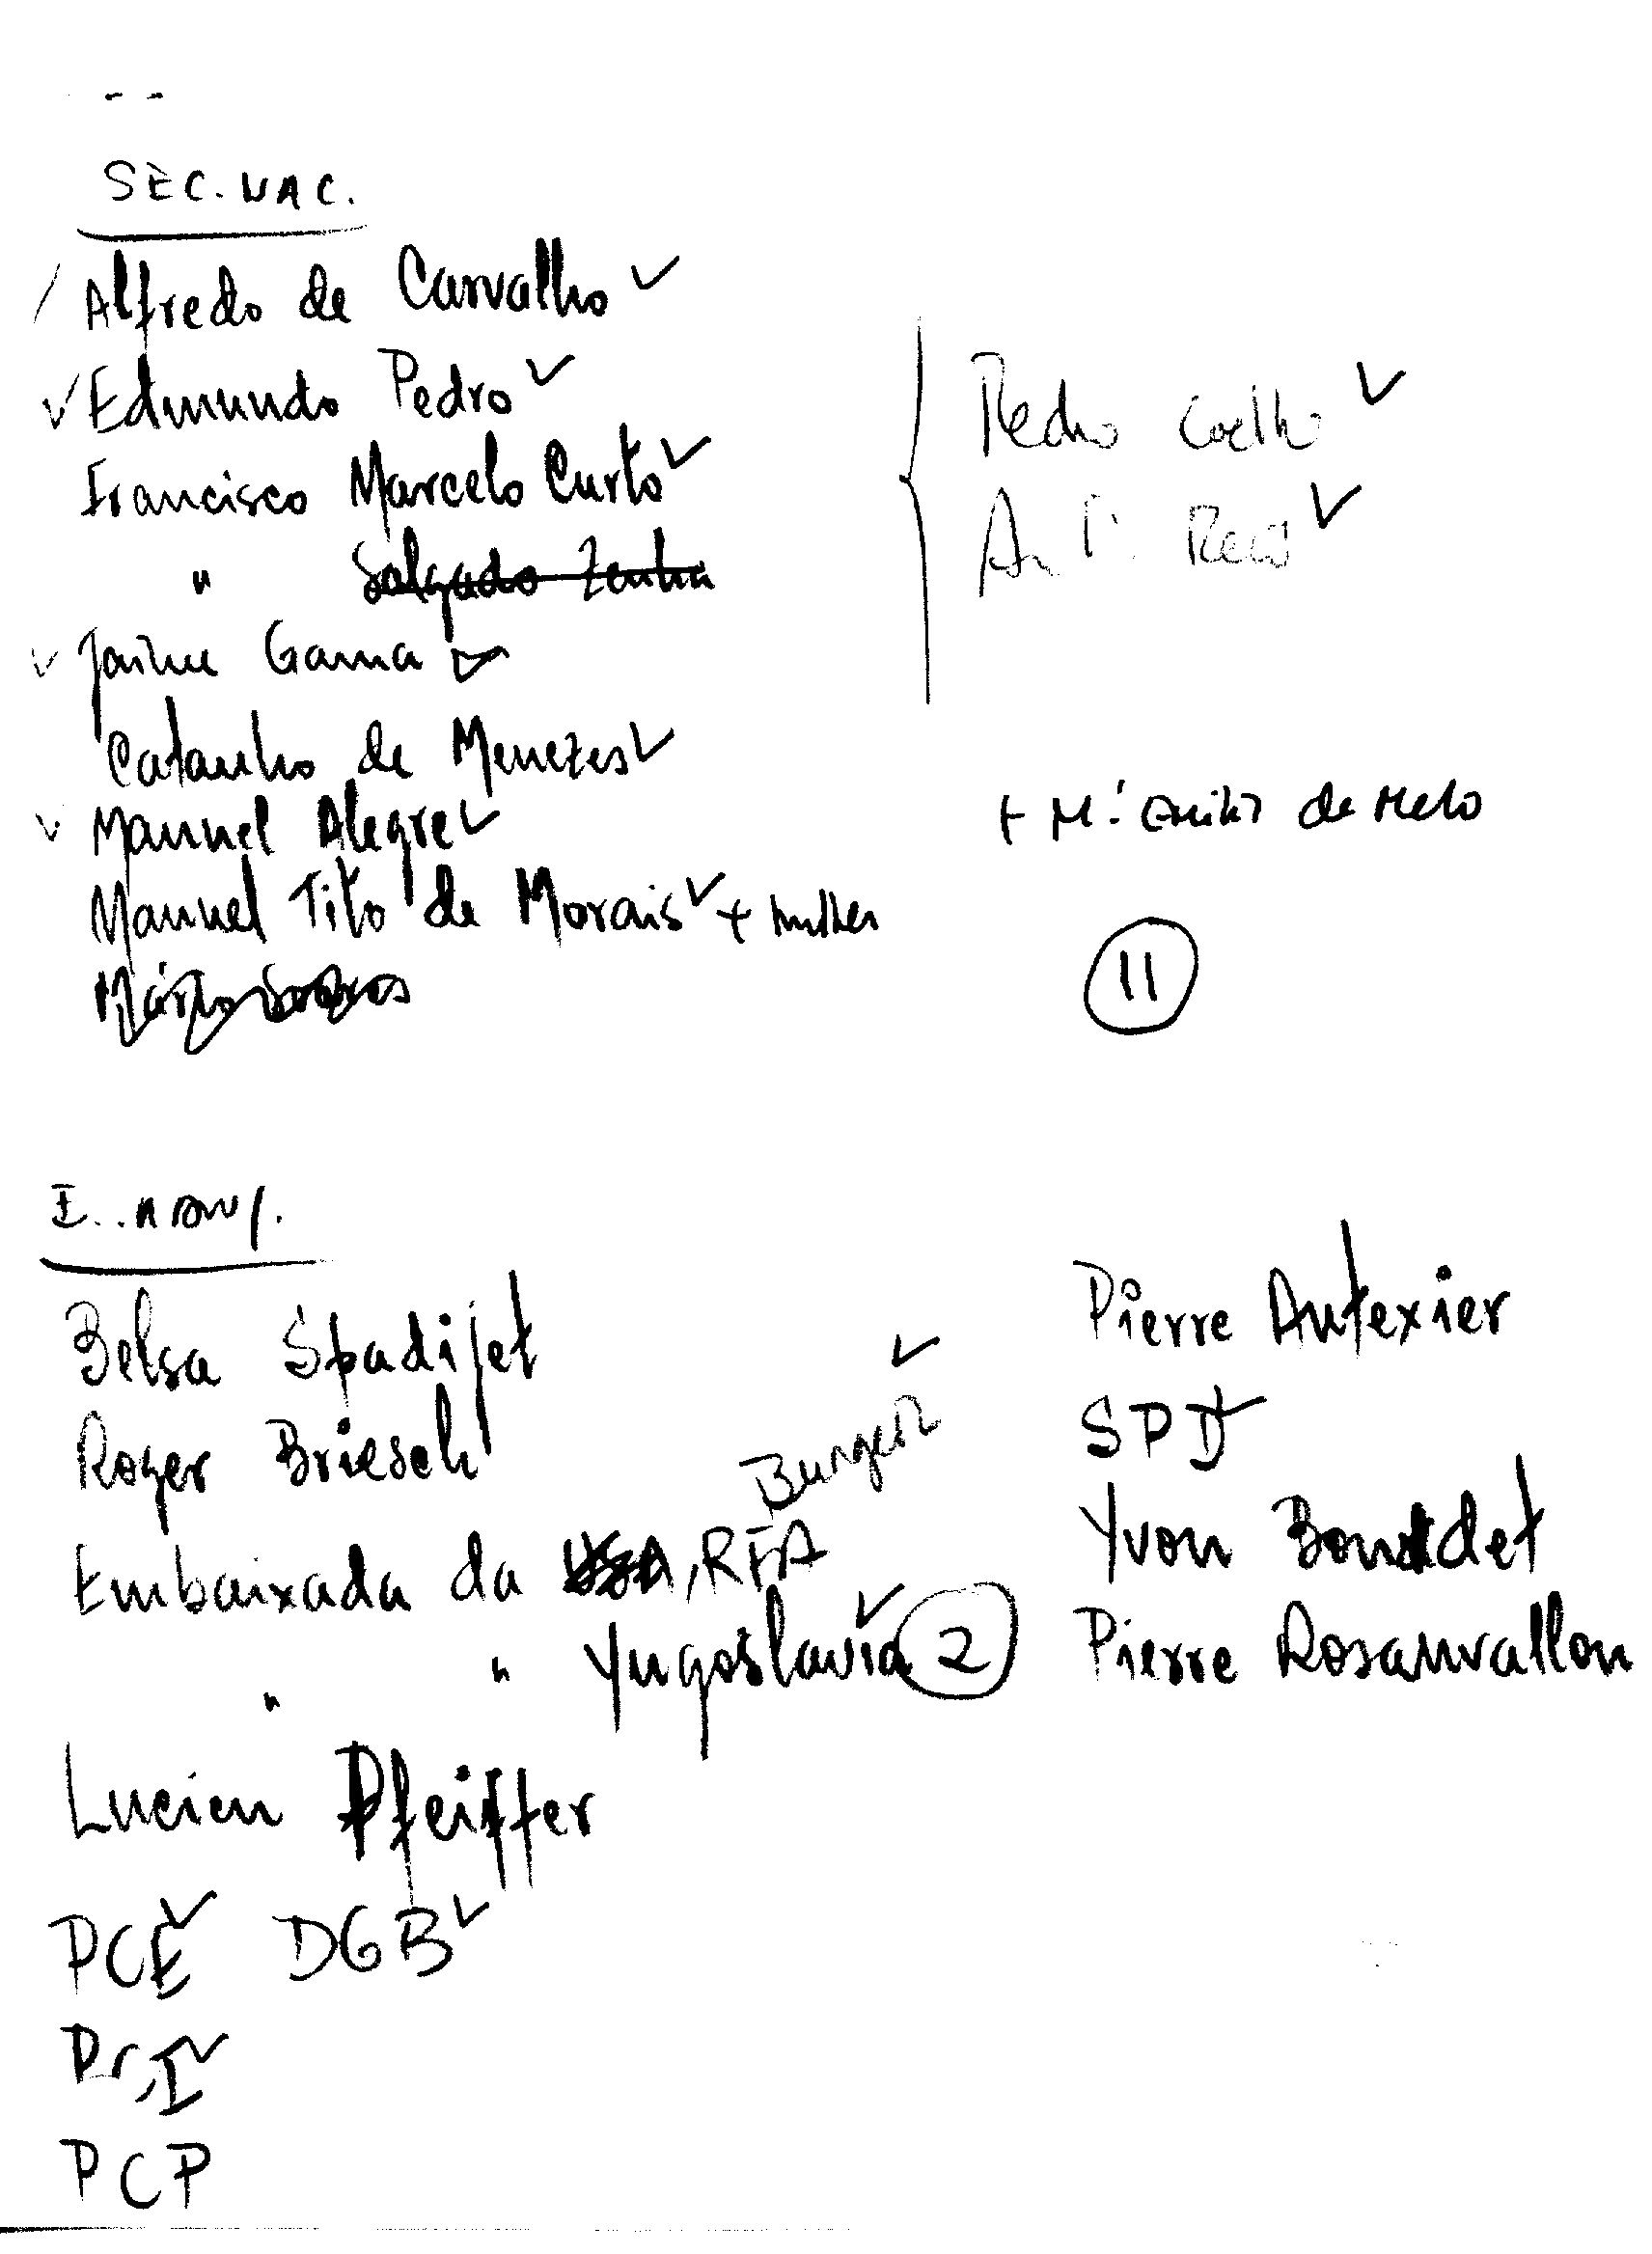 SEC. NAC.
Alfredo de Carvalho ✓
✓ Edmundo Pedro ✓
Francisco Marcelo Curto ✓
" Salgado Zenha
✓ Jaime Gama ✓
Catanho de Menezes ✓
✓ Manuel Alegre ✓
Manuel Tito de Morais ✓ + mulher
Mário Soares
Pedro Coelho ✓
Ant. Reis ✓
+ Mª Emília de Melo
11
Belsa Spadijet
Roger Briesch
Embaixada da USA, RFA Burger ✓
" " Yugoslavia ✓ 2
Lucien Pfeiffer
PCE ✓ DGB ✓
PCI ✓
PCP
Pierre Autexier
SPD ✓
Yvon Bourdet
Pierre Rosanvallon